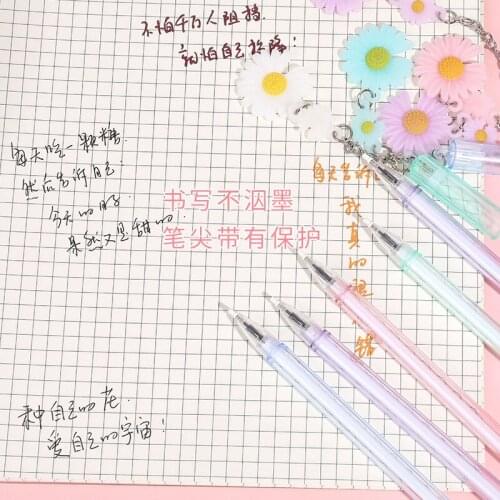 不怕千万人阻挡
就怕自己投降!
每天吃一颗糖
然后告诉自己:
今天的日子
果然又是甜的.
书写不洇墨
笔尖带有保护
每天告诉
我真的很不错
来种自己的花
爱自己的宇宙!